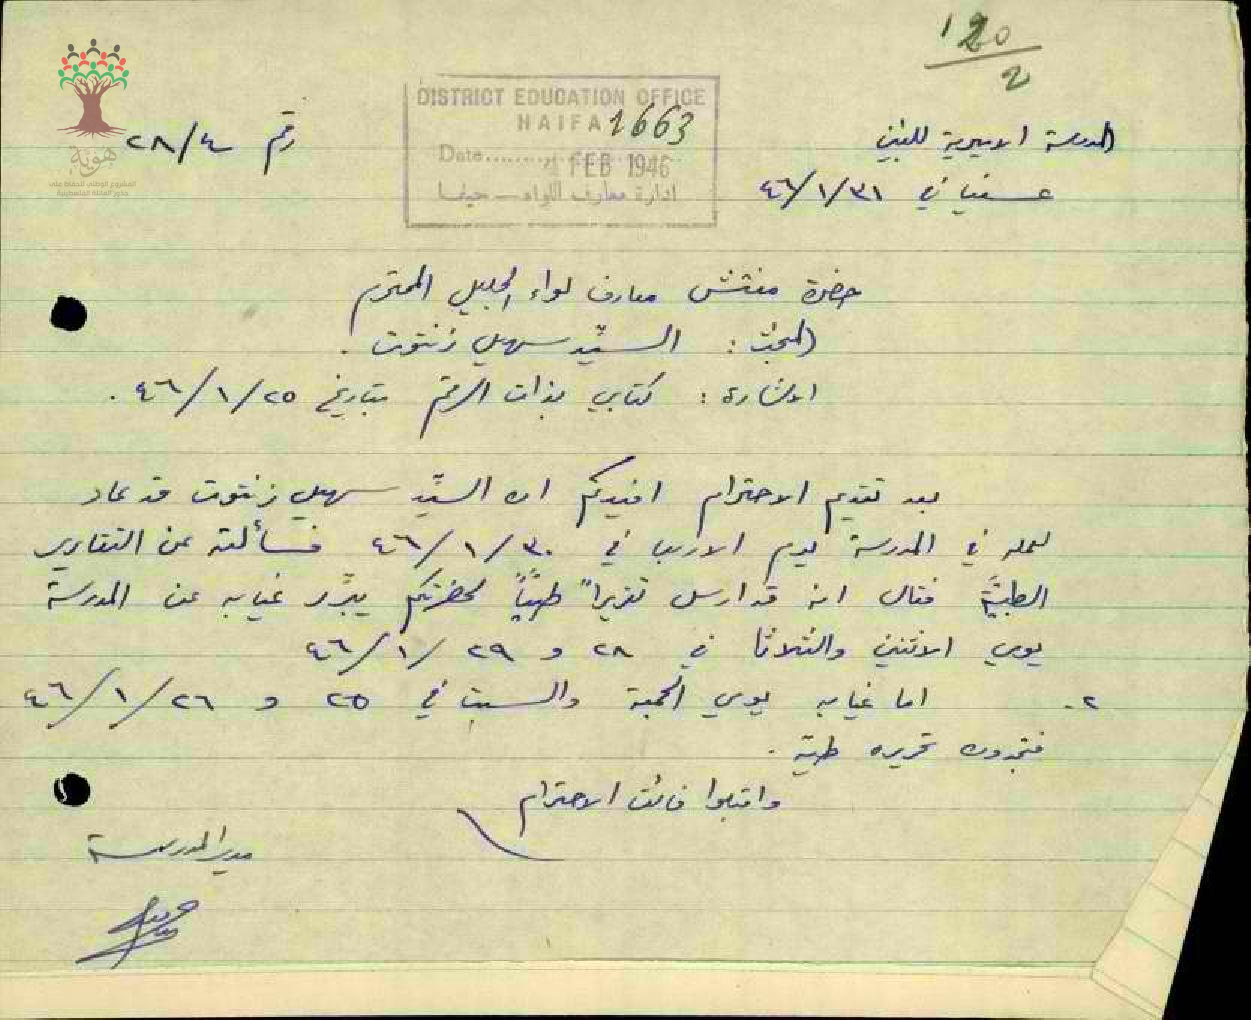 120
2
DISTRICT EDUCATION OFFICE
HAIFA 1663
Date.......... 4 FEB 1946
ادارة معارف اللواء - حيفا
المدرسة الاميرية للبنين
عسفيا في ٤٦/١/٣١
رقم ٢٨/٤
هوية
المشروع الوطني للحفاظ على
جذور العائلة الفلسطينية
حضرة مفتش معارف لواء الجليل المحترم
المبحث : السيّد سهيل زنتوت .
الاشارة : كتابي بذات الرقم بتاريخ ٤٦/١/٢٥ .
بعد تقديم الاحترام افيدكم ان السيّد سهيل زنتوت قد عاد
لعمله في المدرسة يوم الاربعا في ٤٦/١/٣٠ فسألته عن التقارير
الطبيّة فقال انه قد ارسل تقريراً طبيّاً لحضرتكم يبرّر غيابه عن المدرسة
يومي الاثنين والثلاثا في ٢٨ و ٤٦/١/٢٩
٢. اما غيابه يومي الجمعة والسبت في ٢٥ و ٤٦/١/٢٦
فتجدون تحريره طيّه .
واقبلوا فائق الاحترام
مدير المدرسة